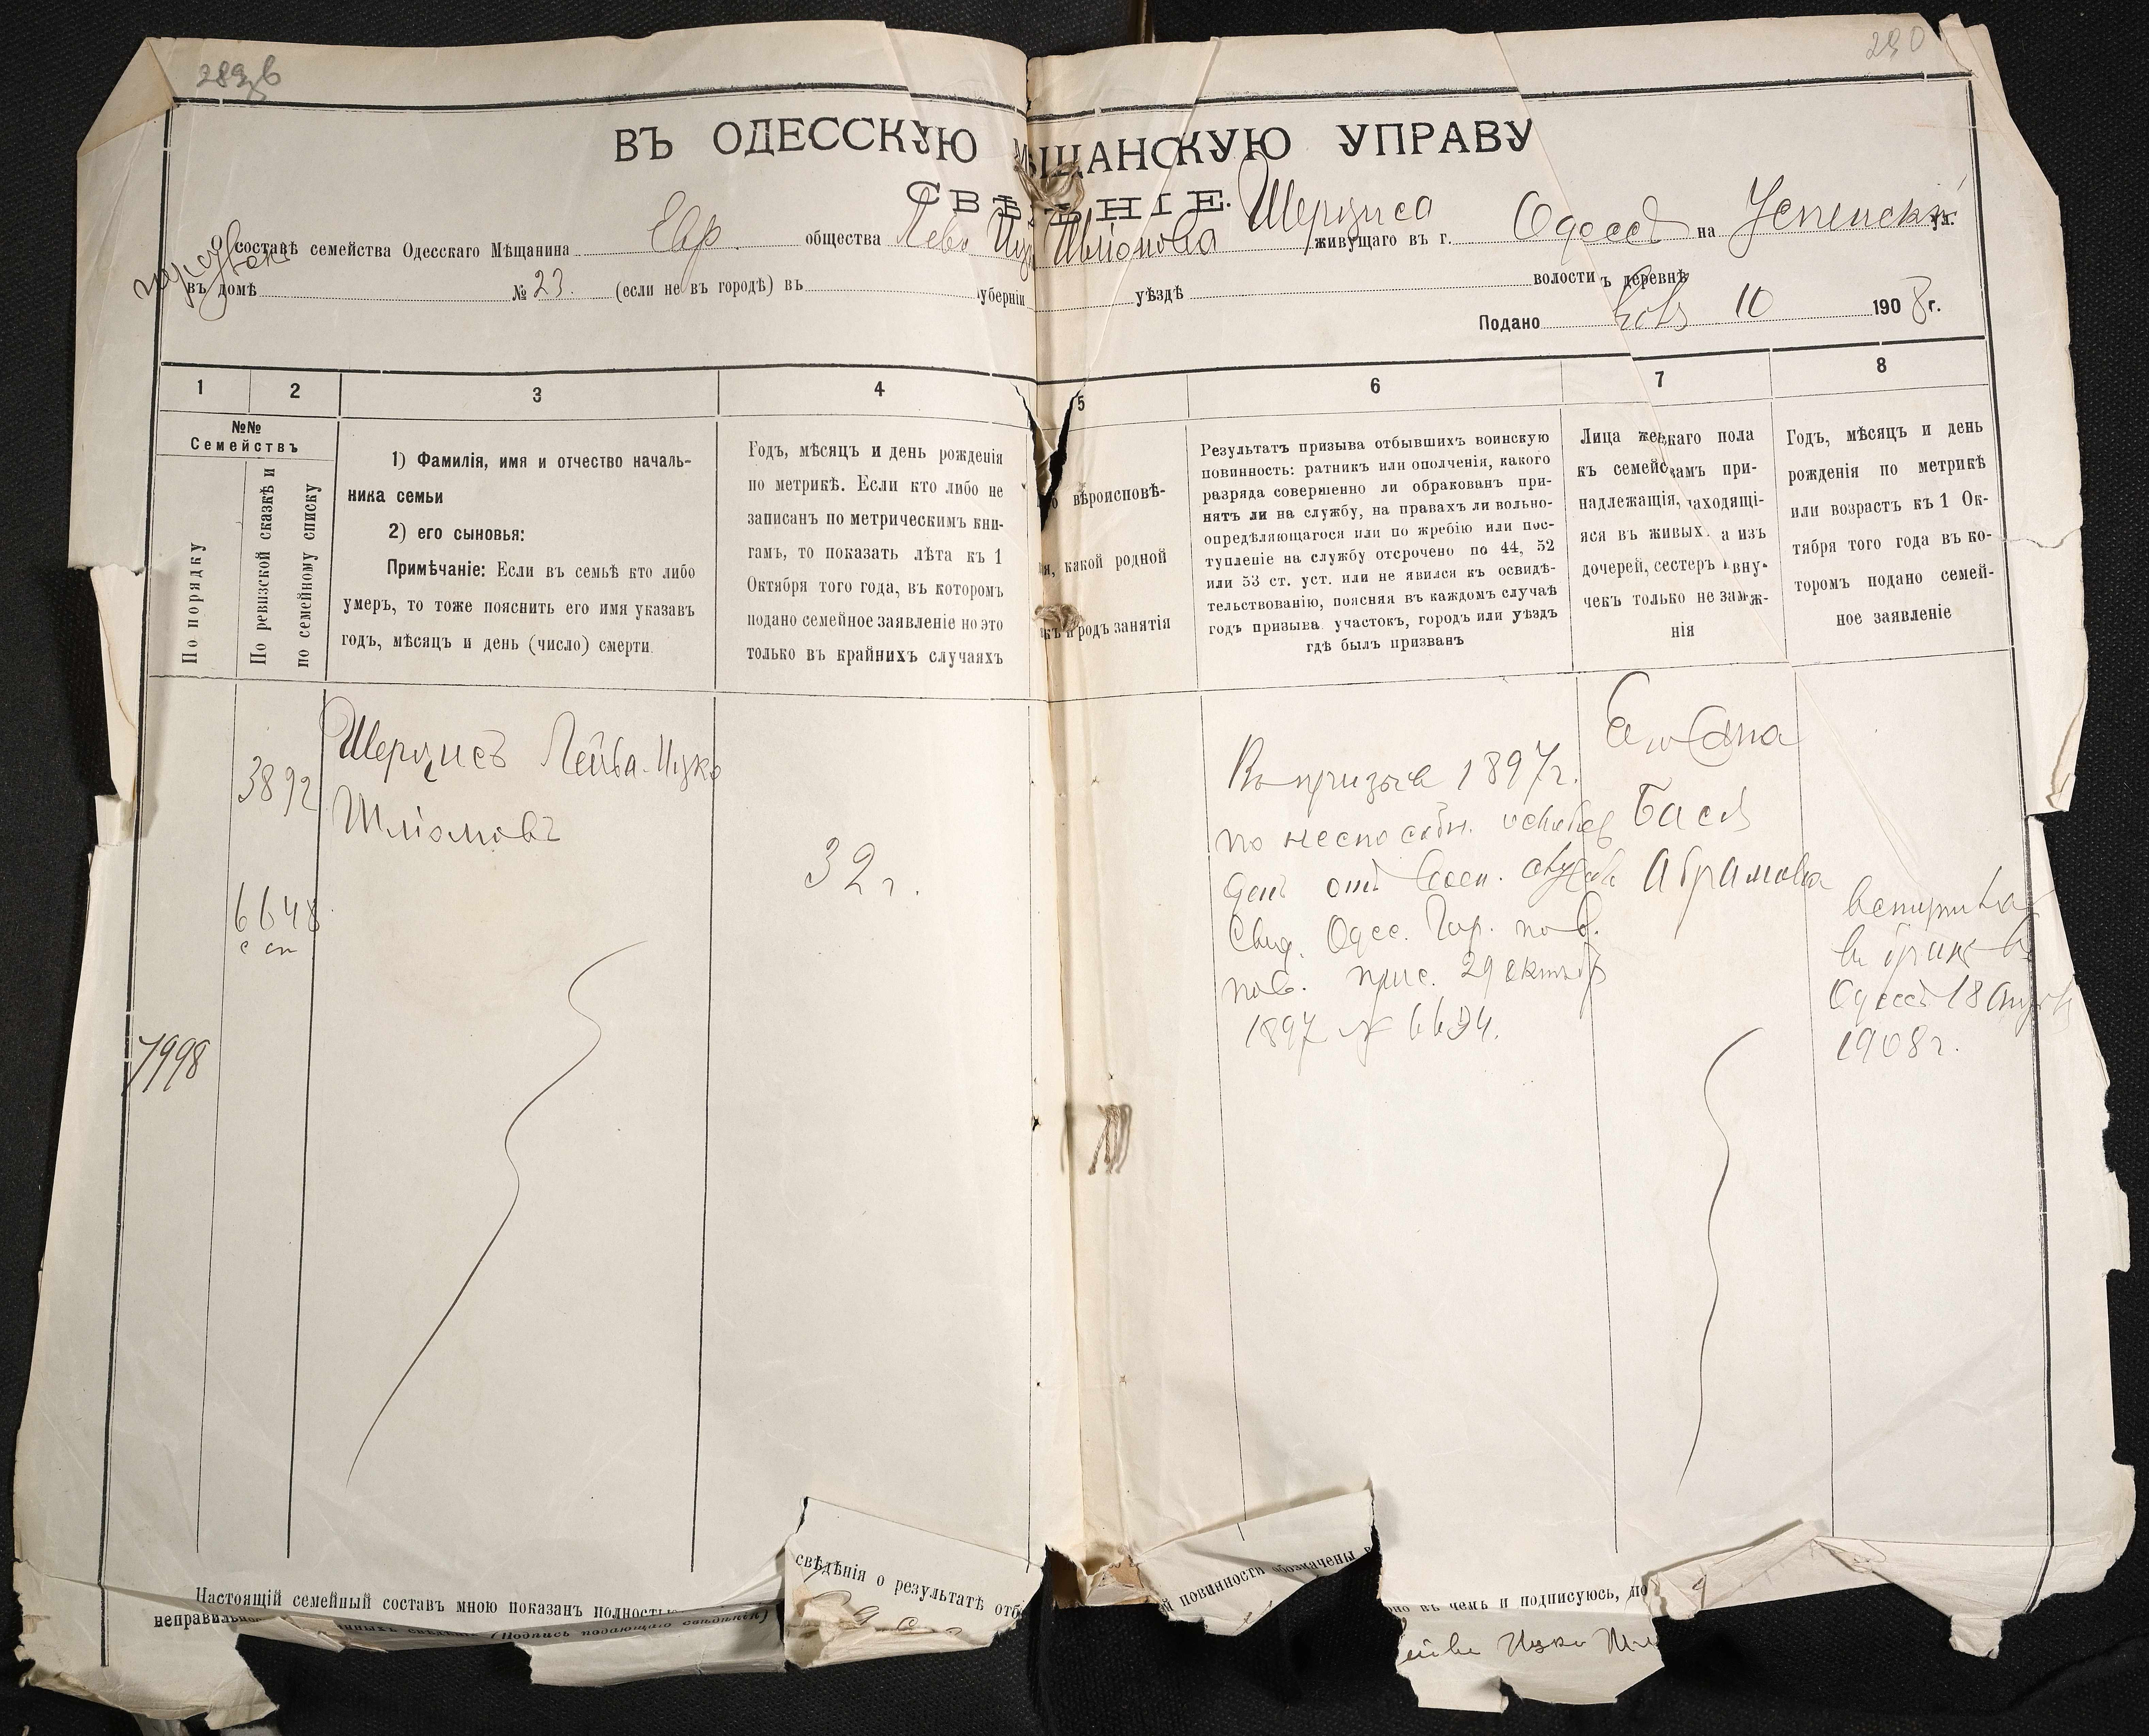 290
ВЪ ОДЕССКУЮ МѢЩАНСКУЮ УПРАВУ
СВѢДѢНІЕ.
О составѣ семейства Одесскаго Мѣщанина Евр. общества Шліомова Шерциса живущаго въ г. Одессѣ на Успенск. ул.
въ домѣ № 23. (если не въ городѣ) въ губерніи уѣздѣ волости ъ деревнѣ
Подано 10 1908 г.
1 2 3 4 5 6 7 8
№№
Семействъ
По порядку
По ревизской сказкѣ и
по семейному списку
1) Фамилія, имя и отчество началь-
ника семьи
2) его сыновья:
Примѣчаніе: Если въ семьѣ кто либо
умеръ, то тоже пояснить его имя указавъ
годъ, мѣсяцъ и день (число) смерти
Годъ, мѣсяцъ и день рожденія
по метрикѣ. Если кто либо не
записанъ по метрическимъ кни-
гамъ, то показать лѣта къ 1
Октября того года, въ которомъ
подано семейное заявленіе но это
только въ крайнихъ случаяхъ
вѣроисповѣ-
какой родной
родъ занятія
Результатъ призыва отбывшихъ воинскую
повинность: ратникъ или ополченія, какого
разряда совершенно ли обракованъ при-
нятъ ли на службу, на правахъ ли вольно-
опредѣляющагося или по жребію или пос-
тупленіе на службу отсрочено по 44, 52
или 53 ст. уст. или не явился къ освидѣ-
тельствованію, поясняя въ каждомъ случаѣ
годъ призыва участокъ, городъ или уѣздъ
гдѣ былъ призванъ
Лица женскаго пола
къ семействамъ при-
надлежащія, находящі-
яся въ живыхъ. а изъ
дочерей, сестеръ и вну-
чекъ только не замж-
нія
Годъ, мѣсяцъ и день
рожденія по метрикѣ
или возрастъ къ 1 Ок-
тября того года въ ко-
торомъ подано семей-
ное заявленіе
3892
6648
с сп
7998
Шерцисъ Лейба-Ицко
Шліомовъ
32 г.
Въ призывѣ 1897 г.
по неспособн. освобож
денъ отъ воен. службы
Свид. Одес. Гор. по в.
пов. прис. 29 октября
1897 №
Его жена
Бася
Абрамова
вступила
въ бракъ въ
Одессѣ 18 Августа
1908 г.
Настоящій семейный составъ мною показанъ полностью
свѣдѣнія о результатѣ отб
й повинности обозначены в
но въ чемъ и подписуюсь, по
неправильно
(Подпись подающаго свѣдѣнія)
ейба Ицко Шл